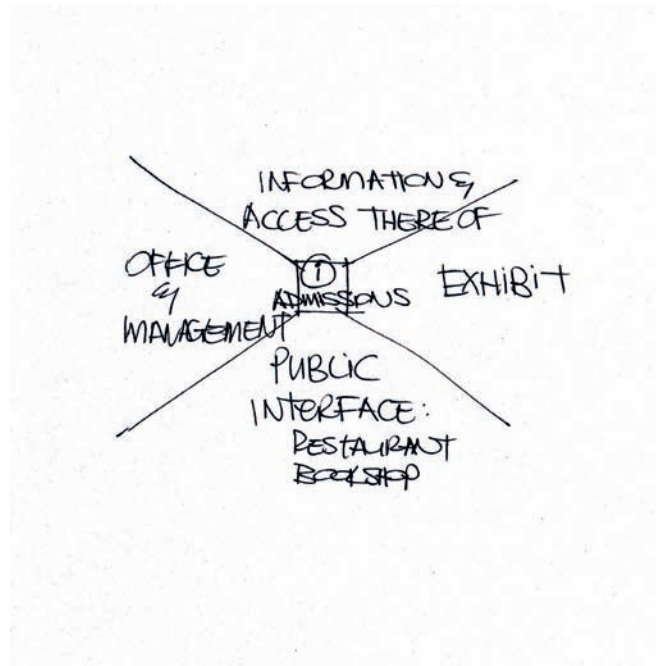 INFORMATION &
ACCESS THERE OF
OFFICE
&
MANAGEMENT
1
ADMISSIONS
EXHIBIT
PUBLIC
INTERFACE:
RESTAURANT
BOOKSHOP